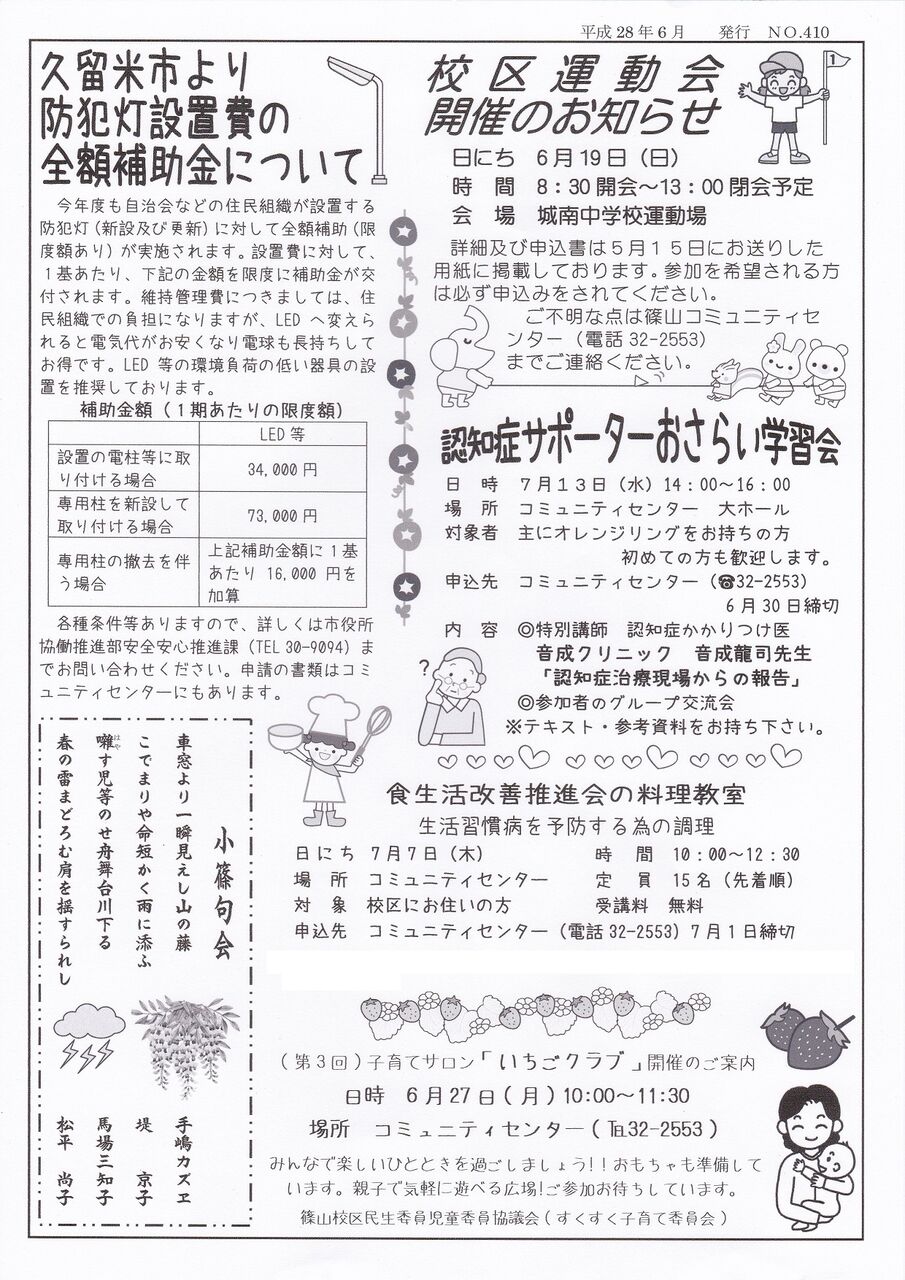 平成28年6月　発行　NO.410
久留米市より
防犯灯設置費の
全額補助金について
　今年度も自治会などの住民組織が設置する
防犯灯（新設及び更新）に対して全額補助（限
度額あり）が実施されます。設置費に対して、
１基あたり、下記の金額を限度に補助金が交
付されます。維持管理費につきましては、住
民組織での負担になりますが、LED へ変えら
れると電気代がお安くなり電球も長持ちして
お得です。LED 等の環境負荷の低い器具の設
置を推奨しております。
補助金額（１期あたりの限度額）
LED 等
設置の電柱等に取
り付ける場合
34,000 円
専用柱を新設して
取り付ける場合
73,000 円
専用柱の撤去を伴
う場合
上記補助金額に１基
あたり 16,000 円を
加算
　各種条件等ありますので、詳しくは市役所
協働推進部安全安心推進課（TEL 30-9094）ま
でお問い合わせください。申請の書類はコミ
ュニティセンターにもあります。
校区運動会
開催のお知らせ
1
日にち　６月19日（日）
時　間　８：30開会～13：00閉会予定
会　場　城南中学校運動場
　詳細及び申込書は５月１５日にお送りした
用紙に掲載しております。参加を希望される方
は必ず申込みをされてください。
ご不明な点は篠山コミュニティセ
ンター（電話 32-2553）
までご連絡ください。
認知症サポーターおさらい学習会
日　時　７月１３日（水）14：00～16：00
場　所　コミュニティセンター　大ホール
対象者　主にオレンジリングをお持ちの方
初めての方も歓迎します。
申込先　コミュニティセンター（☎32-2553）
６月30日締切
内　容　◎特別講師　認知症かかりつけ医
音成クリニック　音成龍司先生
「認知症治療現場からの報告」
◎参加者のグループ交流会
※テキスト・参考資料をお持ち下さい。
?
小篠句会
車窓より一瞬見えし山の藤　手嶋カズヱ
こでまりや命短かく雨に添ふ　堤　京子
囃す児等のせ舟舞台川下る　馬場三知子
はや
春の雷まどろむ肩を揺すられし　松平　尚子
食生活改善推進会の料理教室
生活習慣病を予防する為の調理
日にち　７月７日（木）　時　間　10：00～12：30
場　所　コミュニティセンター　定　員　15名（先着順）
対　象　校区にお住いの方　受講料　無料
申込先　コミュニティセンター（電話32-2553）７月１日締切
（第３回）子育てサロン「いちごクラブ」開催のご案内
日時　６月27日（月）10:00～11:30
場所　コミュニティセンター（℡32-2553）
みんなで楽しいひとときを過ごしましょう！！おもちゃも準備して
います。親子で気軽に遊べる広場！ご参加お待ちしています。
篠山校区民生委員児童委員協議会（すくすく子育て委員会）